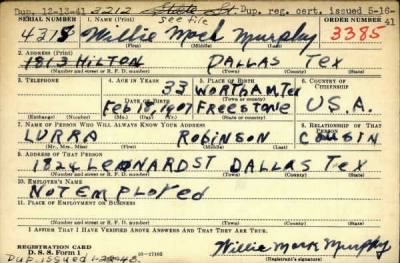 Dup. 12-13-41 3212 State St. Dup. reg. cert. issued 5-16-41
SERIAL NUMBER 1. NAME (Print) see file ORDER NUMBER
4318 Willie Mack Murphy 3385
(First) (Middle) (Last)
2. ADDRESS (Print)
1813 HILTON DALLAS TEX
(Number and street or R. F. D. number) (Town) (County) (State)
3. TELEPHONE 4. AGE IN YEARS 5. PLACE OF BIRTH 6. COUNTRY OF CITIZENSHIP
33 WORTHAM, TEX
DATE OF BIRTH
Feb 18, 1907 FREESTONE U.S.A.
(Exchange) (Number) (Mo.) (Day) (Yr.) (State or country)
7. NAME OF PERSON WHO WILL ALWAYS KNOW YOUR ADDRESS 8. RELATIONSHIP OF THAT PERSON
LURRA ROBINSON COUSIN
(Mr., Mrs., Miss) (First) (Middle) (Last)
9. ADDRESS OF THAT PERSON
1824 LEONARD ST DALLAS TEX
(Number and street or R. F. D. number) (Town) (County) (State)
10. EMPLOYER'S NAME
NOT EMPLOYED
11. PLACE OF EMPLOYMENT OR BUSINESS
(Number and street or R. F. D. number) (Town) (County) (State)
I AFFIRM THAT I HAVE VERIFIED ABOVE ANSWERS AND THAT THEY ARE TRUE.
REGISTRATION CARD
D. S. S. Form 1 Willie Mack Murphy
(Registrant's signature)
Dup. issued 1-28-43